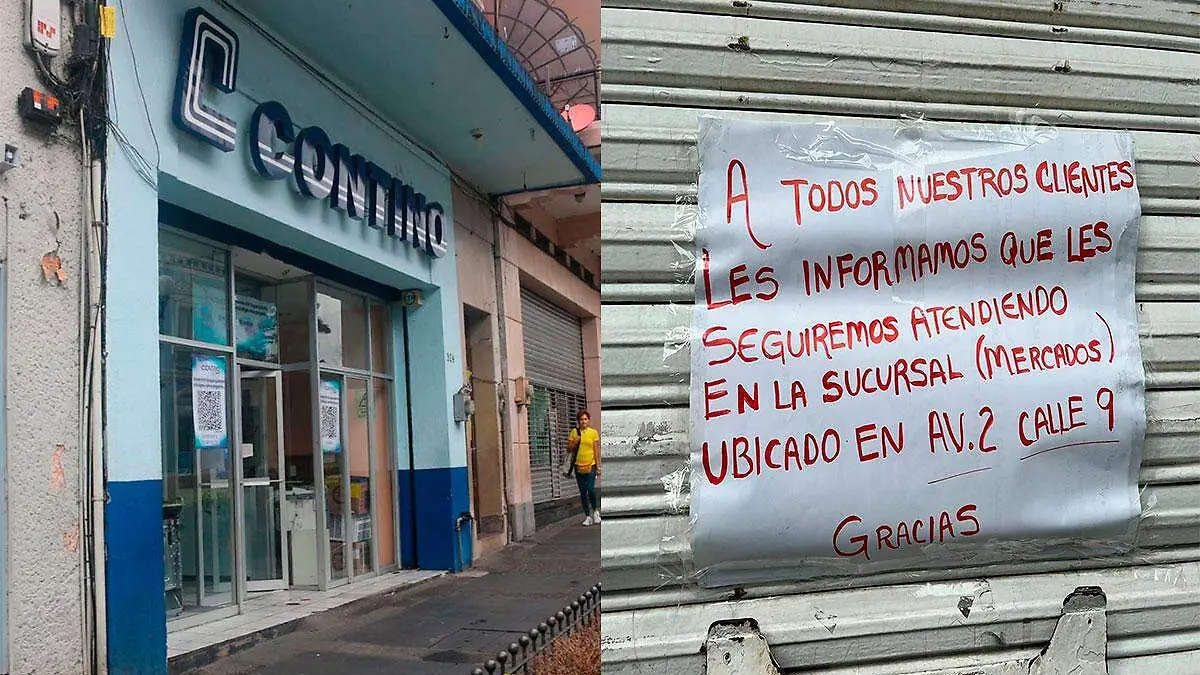 CONTINO
CONTINO
304
A TODOS NUESTROS CLIENTES
LES INFORMAMOS QUE LES
SEGUIREMOS ATENDIENDO
EN LA SUCURSAL (MERCADOS)
UBICADO EN AV.2 CALLE 9
GRACIAS